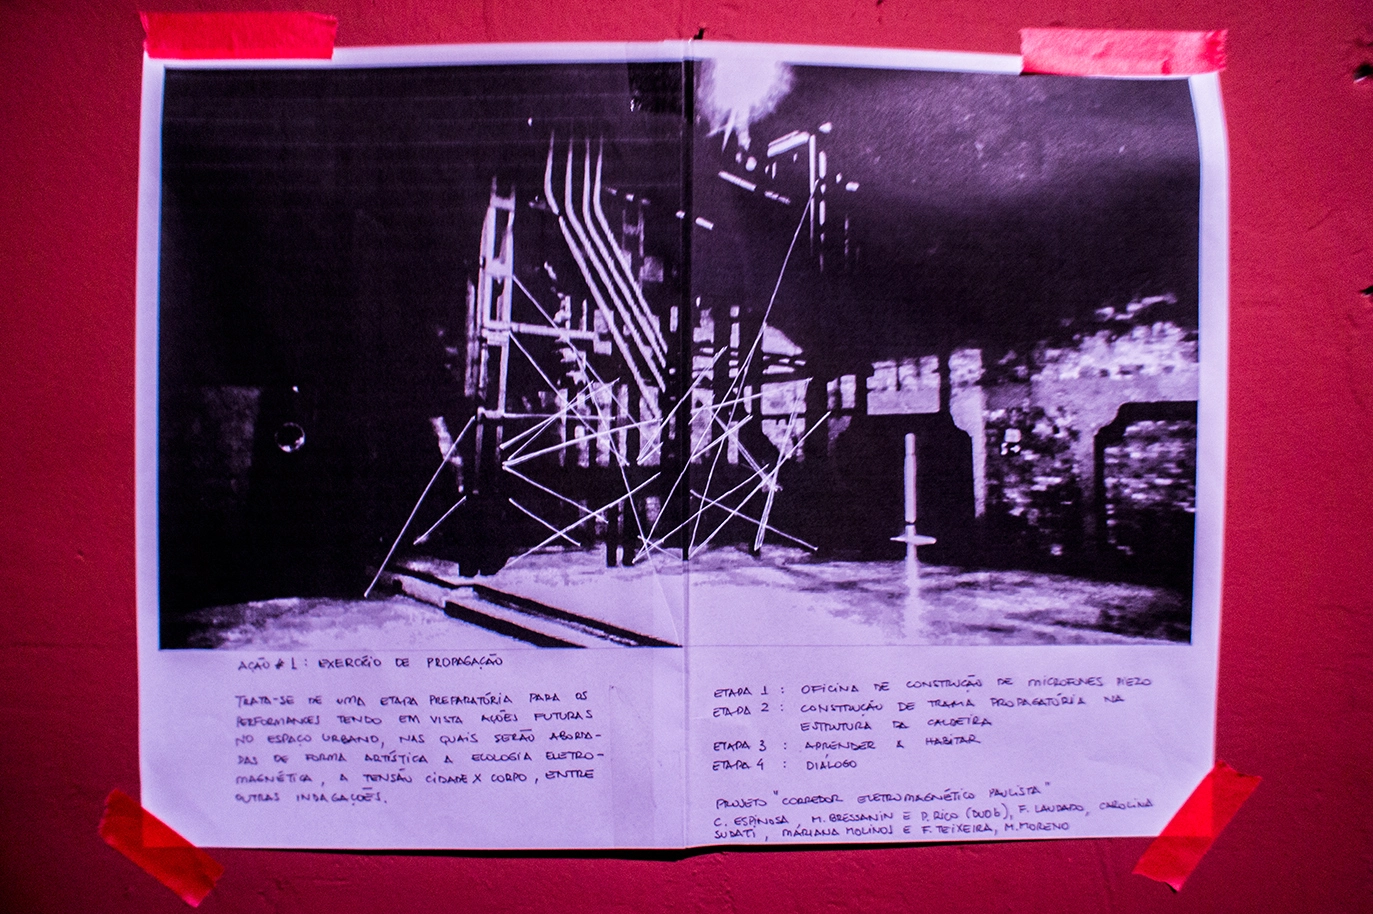 AÇÃO # 1 : EXERCÍCIO DE PROPAGAÇÃO
TRATA-SE DE UMA ETAPA PREPARATÓRIA PARA AS
PERFORMANCES TENDO EM VISTA AÇÕES FUTURAS
NO ESPAÇO URBANO, NAS QUAIS SERÃO ABORDA-
DAS DE FORMA ARTÍSTICA A ECOLOGIA ELETRO-
MAGNÉTICA, A TENSÃO CIDADE X CORPO, ENTRE
OUTRAS INDAGAÇÕES.
ETAPA 1 : OFICINA DE CONSTRUÇÃO DE MICROFONES PIEZO
ETAPA 2 : CONSTRUÇÃO DE TRAMA PROPAGATÓRIA NA
ESTRUTURA DA CALDEIRA
ETAPA 3 : APRENDER A HABITAR
ETAPA 4 : DIÁLOGO
PROJETO "CORREDOR ELETROMAGNÉTICO PAULISTA"
C. ESPINOSA, M. BRESSANIN E P. RICO (DUOb), F. LAUDADO, CAROLINA
SUDATI, MARIANA MOLINOS E F. TEIXEIRA, M. MORENO